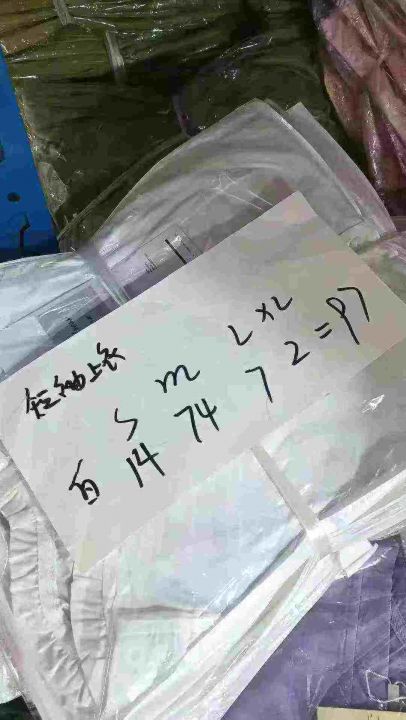 短袖上衣
S m L XL
白 14 74 7 2=97